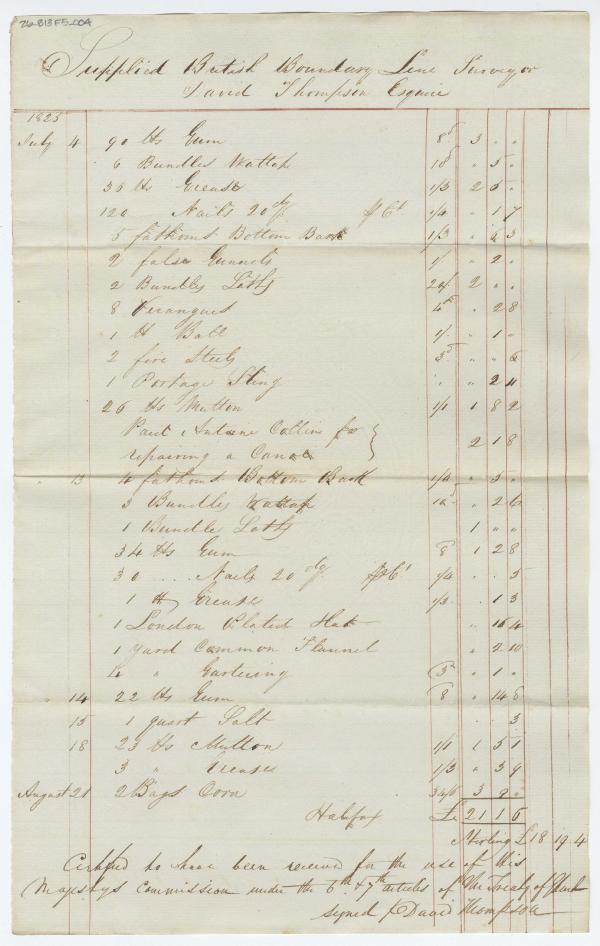 26-813 F5-004
Supplied British Boundary Line Surveyor
David Thompson Esquire
1823
July 4 90 lbs Gum 8d 3 " "
6 Bundles Wattap 10d " 5 "
36 lbs Grease 1/3 2 5 "
120 Nails 20dy 1/4 " 1 7
5 fathoms Bottom Bark 1/3 " 6 3
2 false Gunnels 1/ " 2 "
2 Bundles Laths 20/ 2 " "
8 Verangues 4d " 2 8
1 lb Ball 1/ " 1 "
2 fire Steels 3d " " 6
1 Portage Sling " " 2 4
26 lbs Mutton 1/1 1 8 2
Paid Antoine Collin for
repairing a Canoe } " 2 18
" 13 4 fathoms Bottom Bark 1/3 " 5 "
3 Bundles Wattap 10d " 2 6
1 Bundle Laths 1 " "
34 lbs Gum 8 1 2 8
30 .... Nails 20dy 1/4 " " 5
1 lb Grease 1/3 " 1 3
1 London Plated Hat " 16 4
1 yard Common Flannel " 2 10
4 " Gartering 3d " 1 "
" 14 22 lbs Gum 8 " 14 8
" 15 1 quart Salt " " 3
" 18 23 lbs Mutton 1/1 1 5 1
3 " Grease 1/3 " 3 9
August 21 2 Bags Corn 34/6 3 9 "
Halifax £ 21 1 6
Sterling £18 19 4
Certified to have been received for the use of His
Majestys Commission under the 6th & 7th articles of the Treaty of Ghent
signed / David Thompson